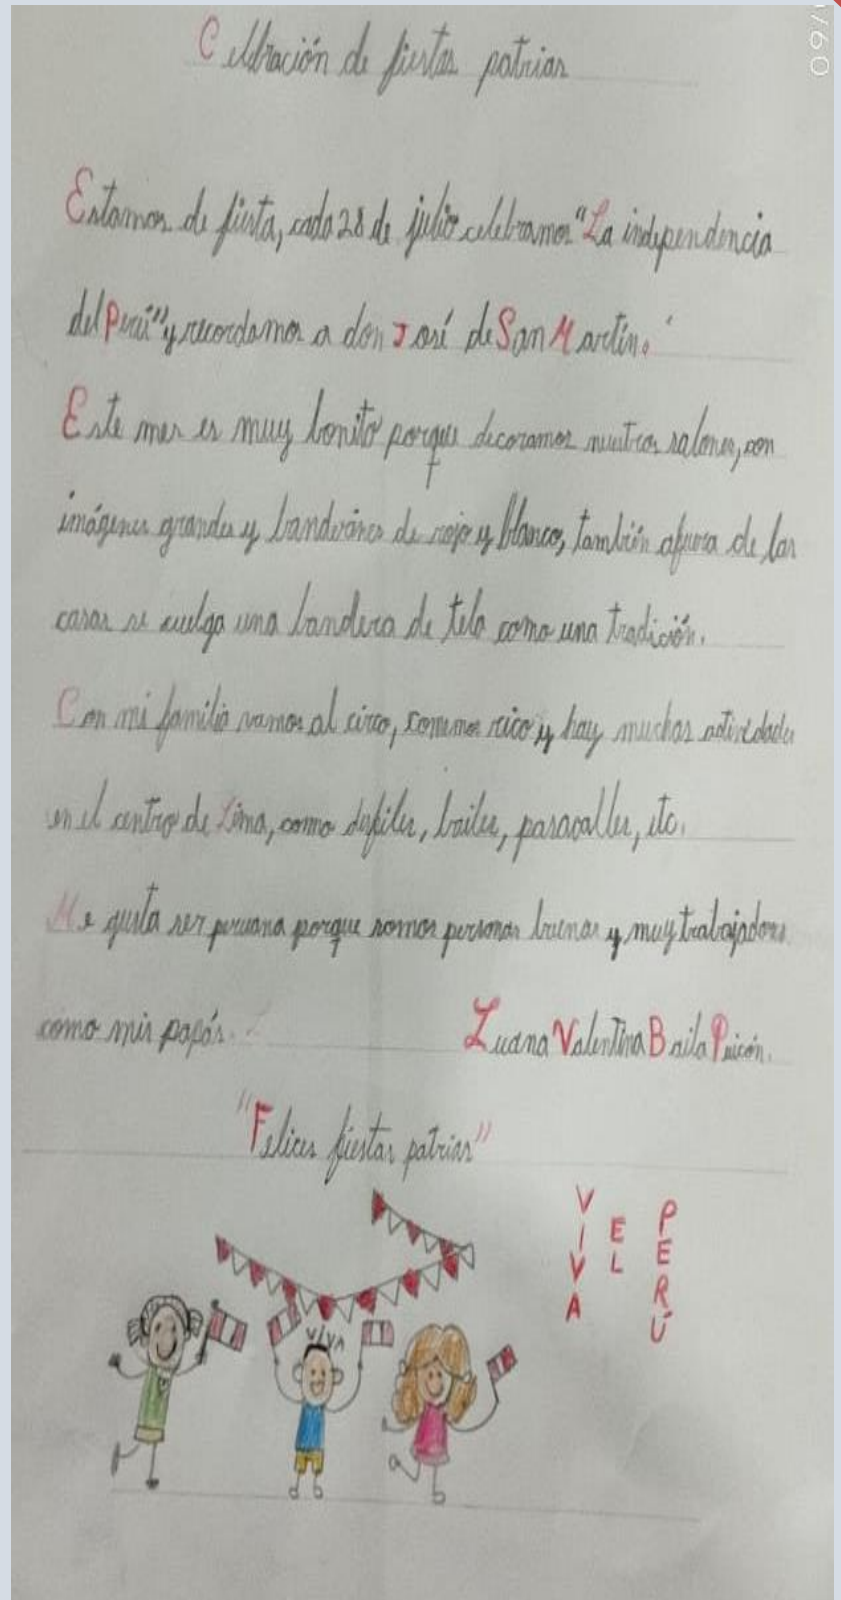 Celebración de fiestas patrias
Estamos de fiesta, cada 28 de julio celebramos "La independencia
del Perú" y recordamos a don José de San Martín.
Este mes es muy bonito porque decoramos nuestros salones, con
imágenes grandes y banderines de rojo y blanco, también afuera de las
casas se cuelga una bandera de tela como una tradición.
Con mi familia vamos al circo, comemos rico y hay muchas actividades
en el centro de Lima, como desfiles, bailes, pasacalles, etc.
Me gusta ser peruana porque somos personas buenas y muy trabajadoras
como mis papás.
Luana Valentina Baila
"Felices fiestas patrias"
VIVA
EL
PERÚ
VIVA